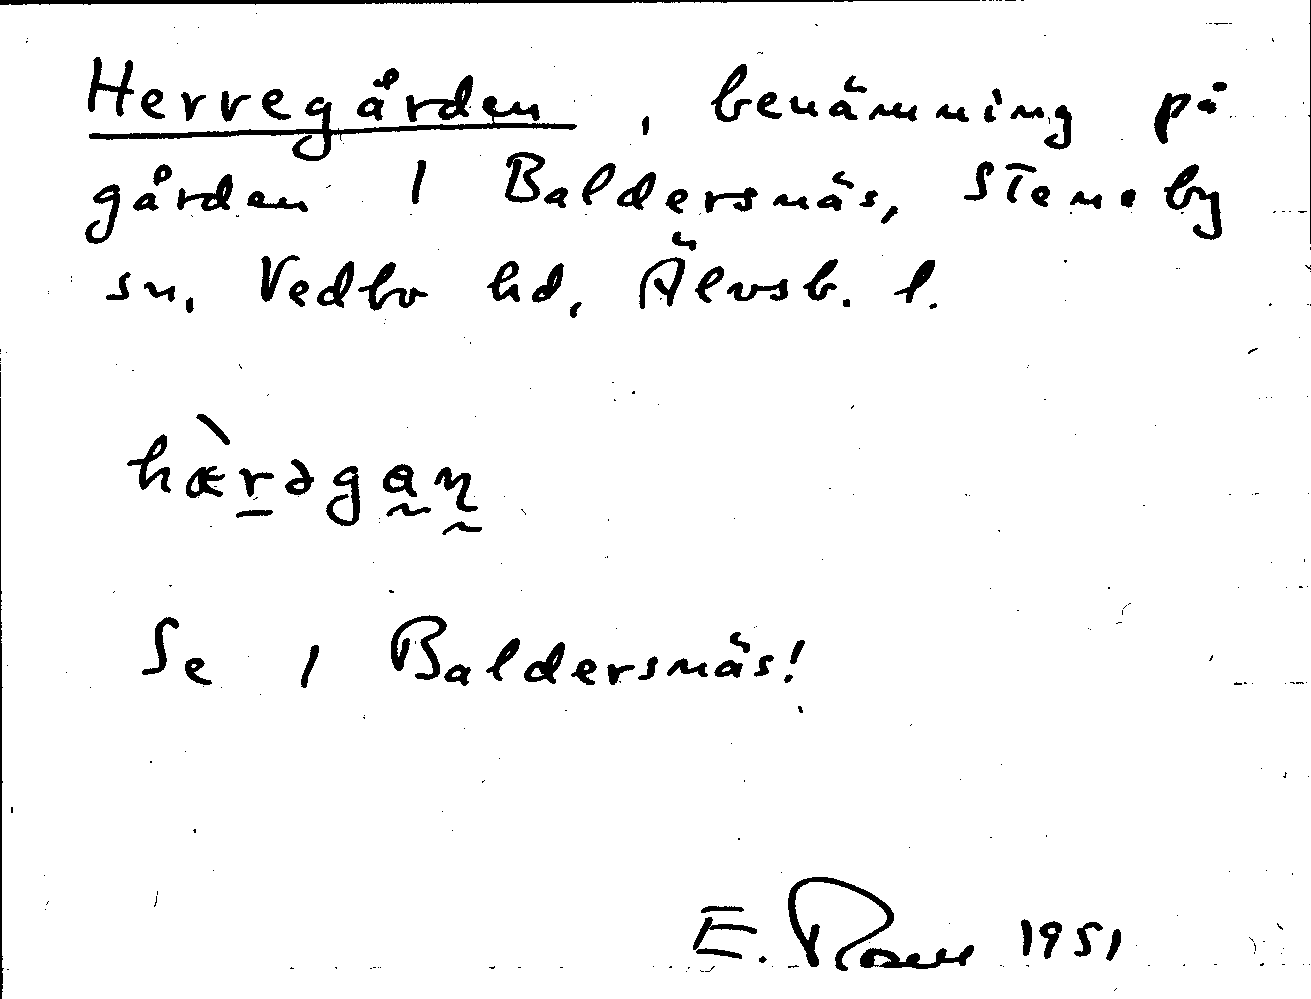 Herregården, benämning på
gården 1 Baldersnäs, Steneby
sn, Vedbo hd, Älvsb. l.
hæ̀r̲əga̰ṋ
Se 1 Baldersnäs!
E. Rosell 1951